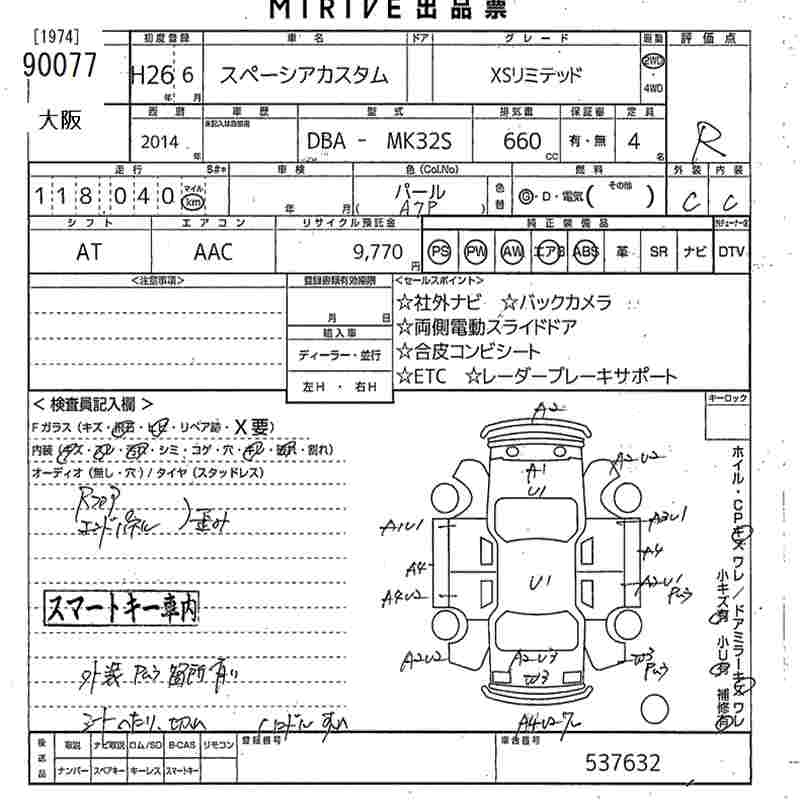 MIRIVE 出品票
[1974]
90077
大阪
初度登録 車名 ドア グレード 駆動 評価点
H26 6 年 月 スペーシアカスタム XSリミテッド 2WD・4WD
R
西暦 車歴 型式 排気量 保証書 定員
2014 年 未記入は自家用 DBA - MK32S 660 CC 有・無 4 名
走行 S#* 車検 色(Col.No) 色替 燃料 外装 内装
118,040 マイル km 年 月 パール (A7P) G・D・電気( その他 ) C C
シフト エアコン リサイクル預託金 純正装備品
AT AAC 9,770 円 PS PW AW エアB ABS 革 SR ナビ DTV
<注意事項> 登録書類有効期限 <セールスポイント>
月 日
輸入車
ディーラー・並行
左H・右H
☆社外ナビ ☆バックカメラ
☆両側電動スライドドア
☆合皮コンビシート
☆ETC ☆レーダーブレーキサポート
<検査員記入欄> キーロック
Fガラス(キズ・飛石・ヒビ・リペア跡・X要)
内装(キズ・汚レ・シミ・コゲ・穴・割れ)
オーディオ(無し・穴)/タイヤ(スタッドレス)
Rフロア
エンドパネル )歪み
スマートキー車内
外装 Pムラ 箇所有り
シートへたり、切れ ハンドル すれ
A2
A1
U1
A2U2
A1U1
A2U1
A4
A4
U1
A2U1
Pムラ
A4U2
A2U2
A2U3
W3
W3
Pムラ
ホイル・CPキズワレ/ドアミラーキズワレ
小キズ有 小U有 補修有
後送品 取説 ナビ取説 ロム/SD B-CAS リモコン 登録番号 車台番号
ナンバー スペアキー キーレス スマートキー 537632